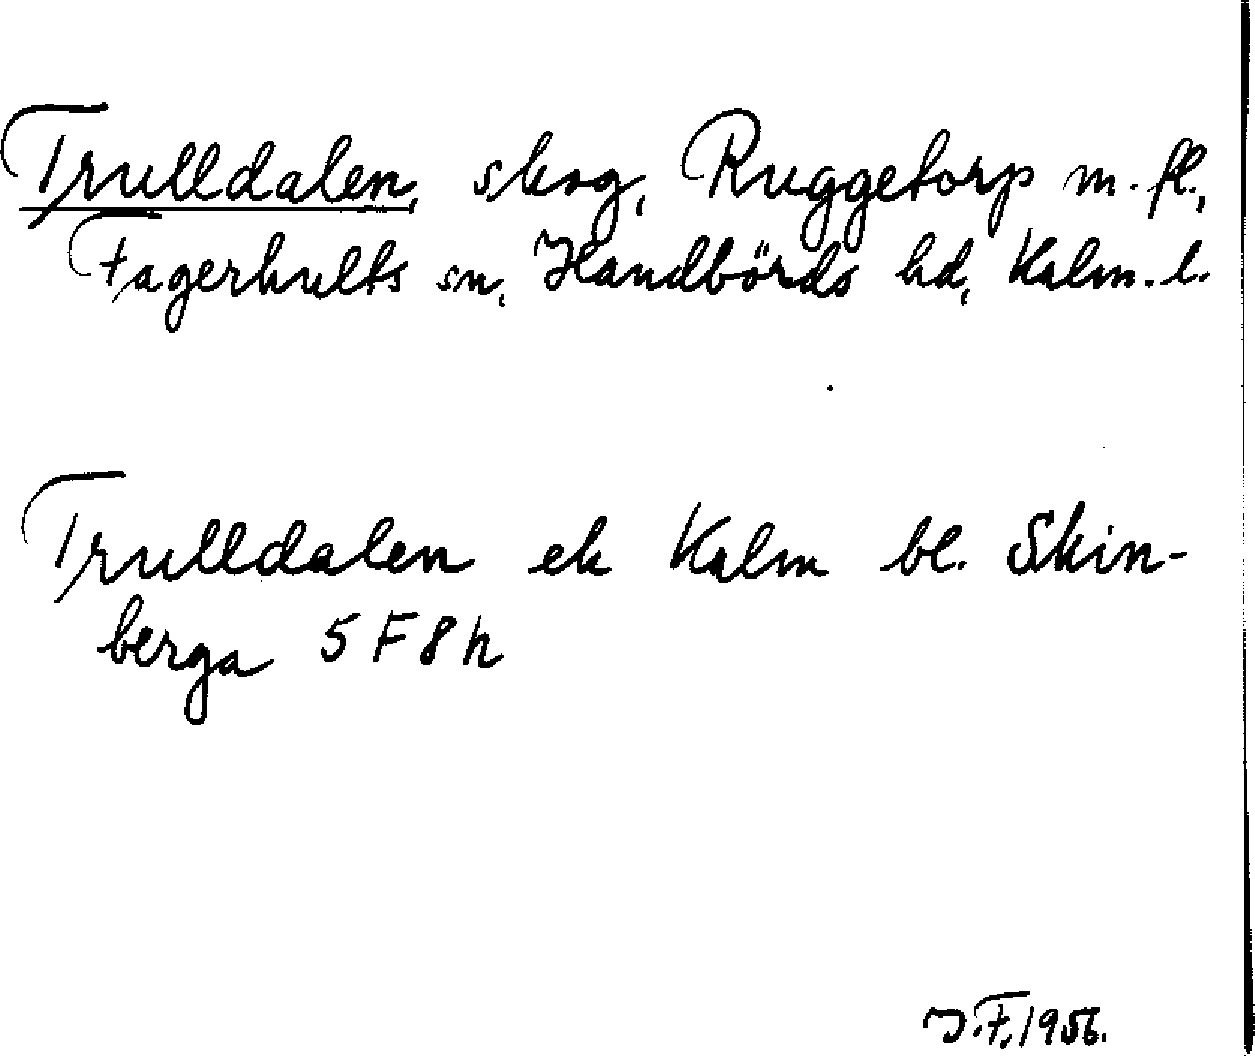 Trulldalen, skog, Ruggetorp m. fl.,
Fagerhults sn, Handbörds hd, Kalm. l.
Trulldalen ek Kalm bl. Skin-
berga 5 F 8 h
J. F. 1956.